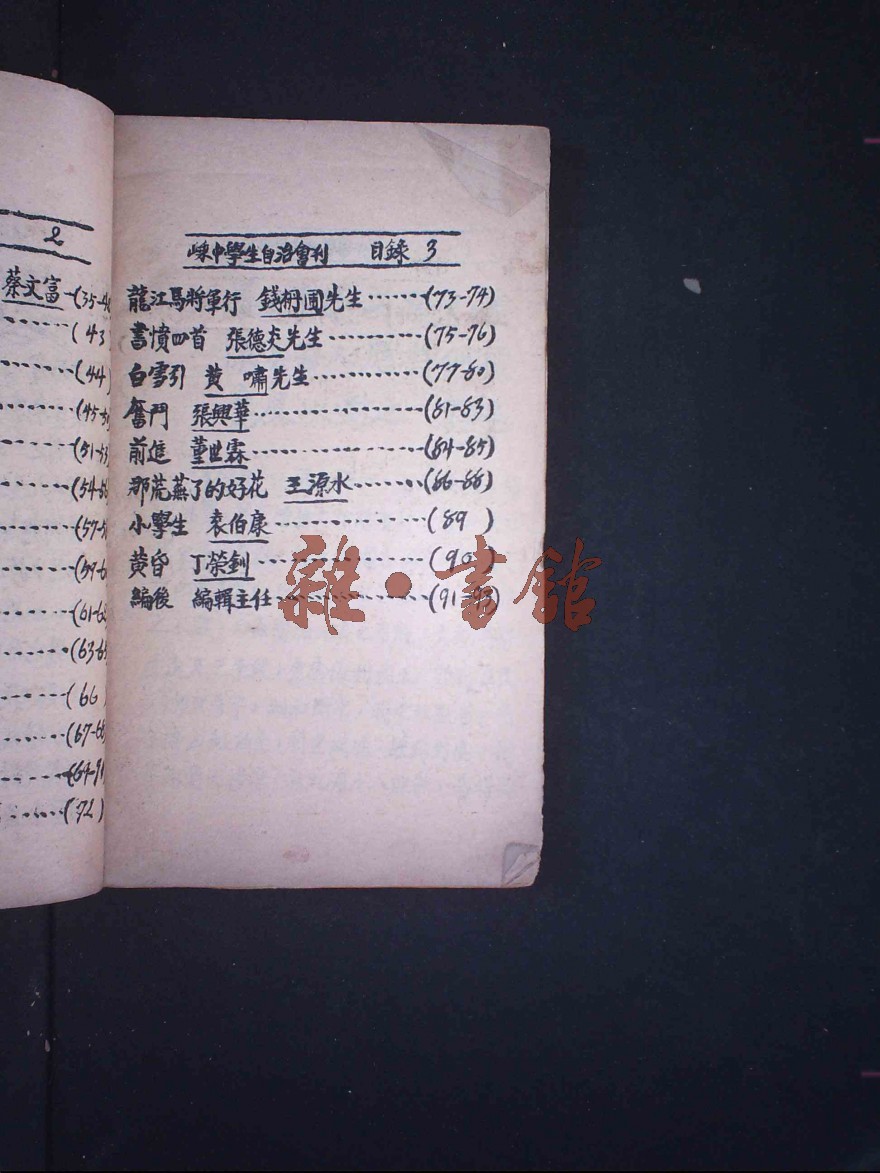 2
蔡文富 (35-4
(43
(44)
(45-5
(51-53
(54-56
(57-5
(59-6
(61-6
(63-65
(66)
(67-68
(69-71
(72)
嵊中學生自治會刊 目錄 3
龍江馬將軍行 錢栩圃先生………(73-74)
書憤四首 張德炎先生………(75-76)
白雪引 黄嘯先生………(77-80)
奮鬥 張興華………(81-83)
前進 董世霖………(84-85)
那荒蕪了的好花 王源水………(86-88)
小學生 袁伯康………(89 )
黄昏 丁榮釗………(90)
編後 編輯主任………(91-93)
雜·書館